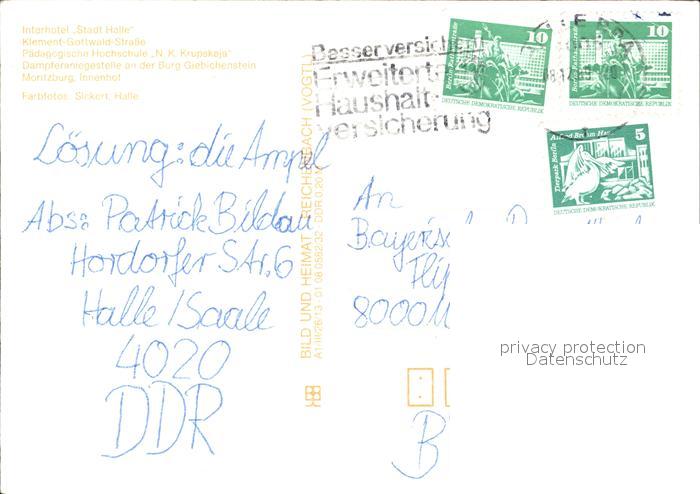 Interhotel „Stadt Halle"
Klement-Gottwald-Straße
Pädagogische Hochschule „N. K. Krupskaja"
Dampferanlegestelle an der Burg Giebichenstein
Moritzburg, Innenhof
Farbfotos: Sickert, Halle
Besser versichert
Erweiterte
Haushalt-
versicherung
10
Berlin
DEUTSCHE DEMOKRATISCHE REPUBLIK
10
DEUTSCHE DEMOKRATISCHE REPUBLIK
5
Alfred Brehm Haus
Tierpark Berlin
DEUTSCHE DEMOKRATISCHE REPUBLIK
Lösung: die Ampel
Abs: Patrick Bildau
Hordorfer Str. 6
Halle / Saale
4020
DDR
BILD UND HEIMAT REICHENBACH (VOGTL)
A1/III/26/13 · 01 08 0582/32 · DDR 0,20 M
An
8000 M
B
privacy protection
Datenschutz